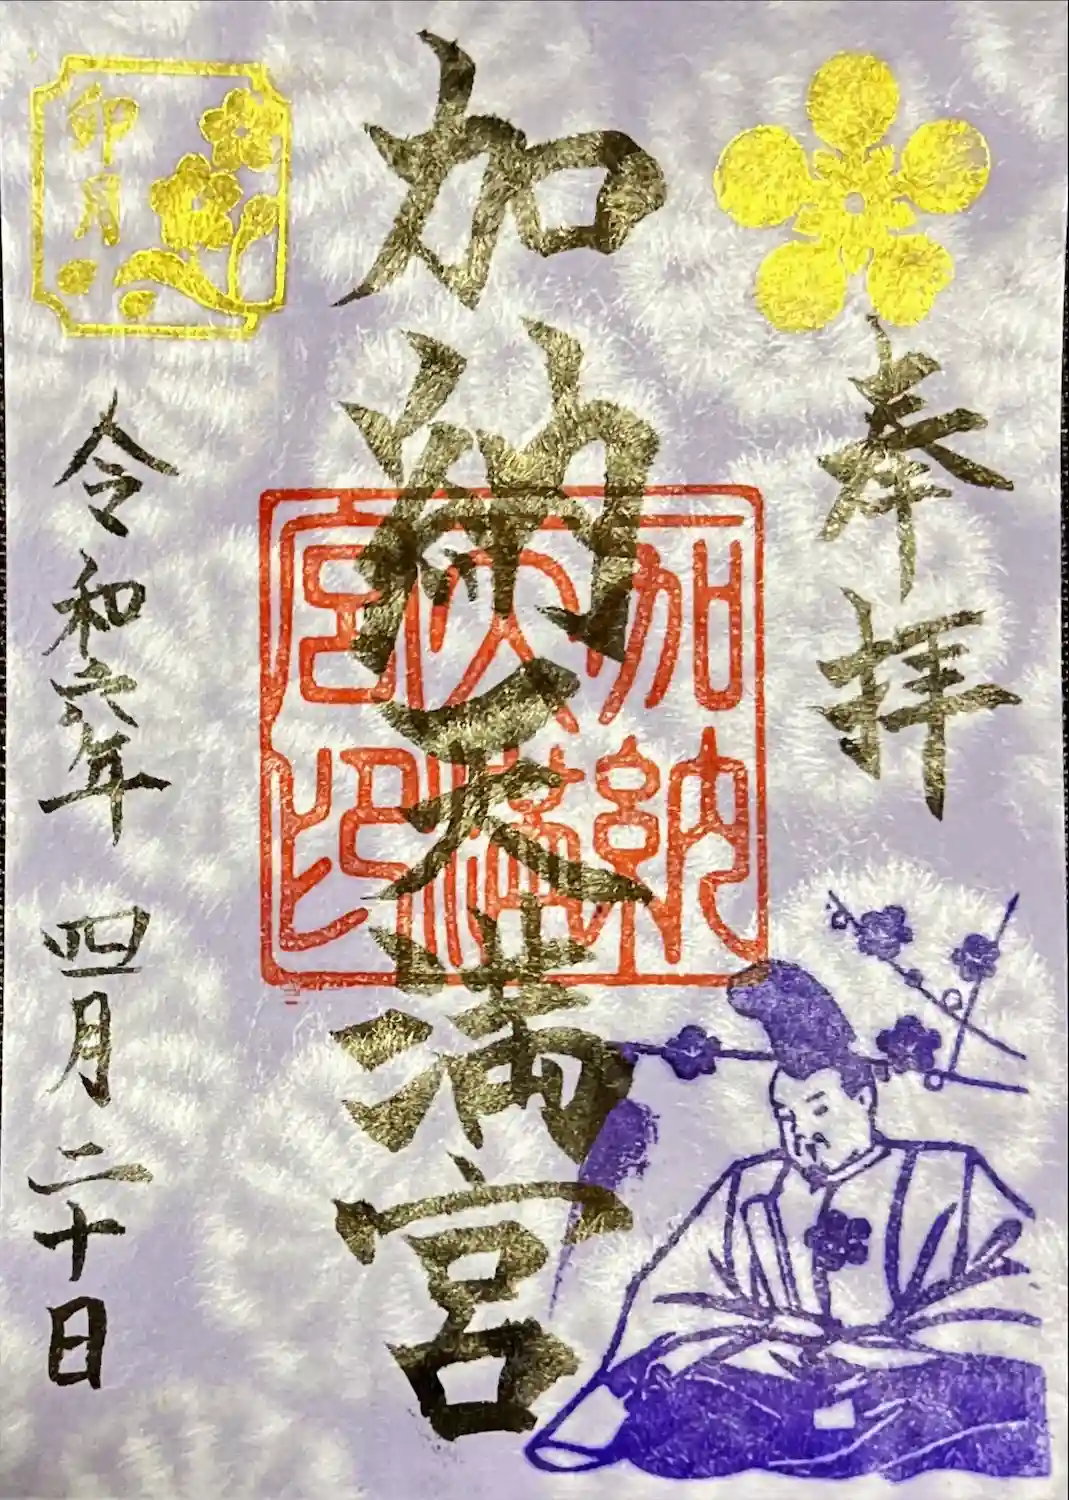 奉拝
加納天満宮
加納
天満
宮印
卯月
令和六年 四月二十日